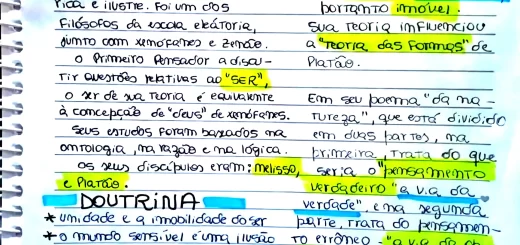 rica e ilustre. Foi um dos
Filósofos da escola eleátoria,
junto com xenófanes e Zenão.
o Primeiro Pensador a discu-
tir questões relativas ao "SER",
o ser de sua teoria é equivalente
à concepção de "deus" de xenófanes.
Seus estudos foram baseados na
ontologia, na razão e na lógica.
os seus discípulos eram: melisso,
e Platão.
DOUTRINA
* unidade e a imobilidade do ser
* o mundo sensível é uma ilusão
portanto imóvel.
sua teoria influenciou
a "teoria das formas" de
Platão.
Em seu poema "da na-
tureza", que está dividido
em duas partes, na
primeira, trata do que
seria o "pensamento
verdadeiro" "a via da
verdade", e na segunda
parte, trata do pensamen-
to errôneo "a via da